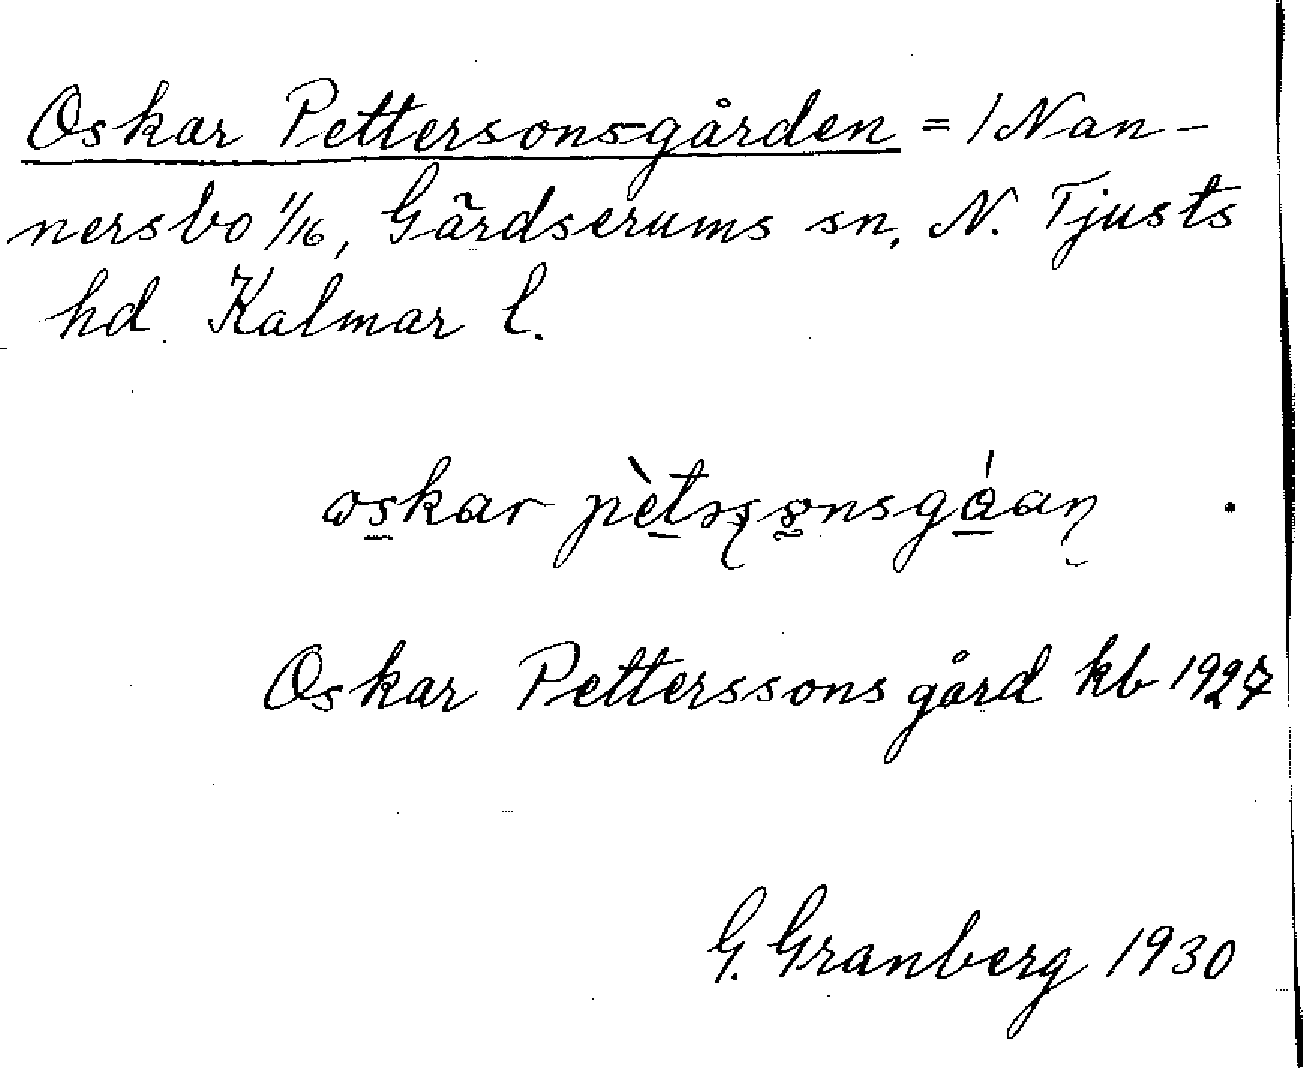 Oskar Pettersonsgården = / Nan-
nersbo 1/16, Gärdserums sn, N. Tjusts
hd. Kalmar l.
oskar pètrsonsgáan
Oskar Petterssons gård kb 1927
G. Granberg 1930